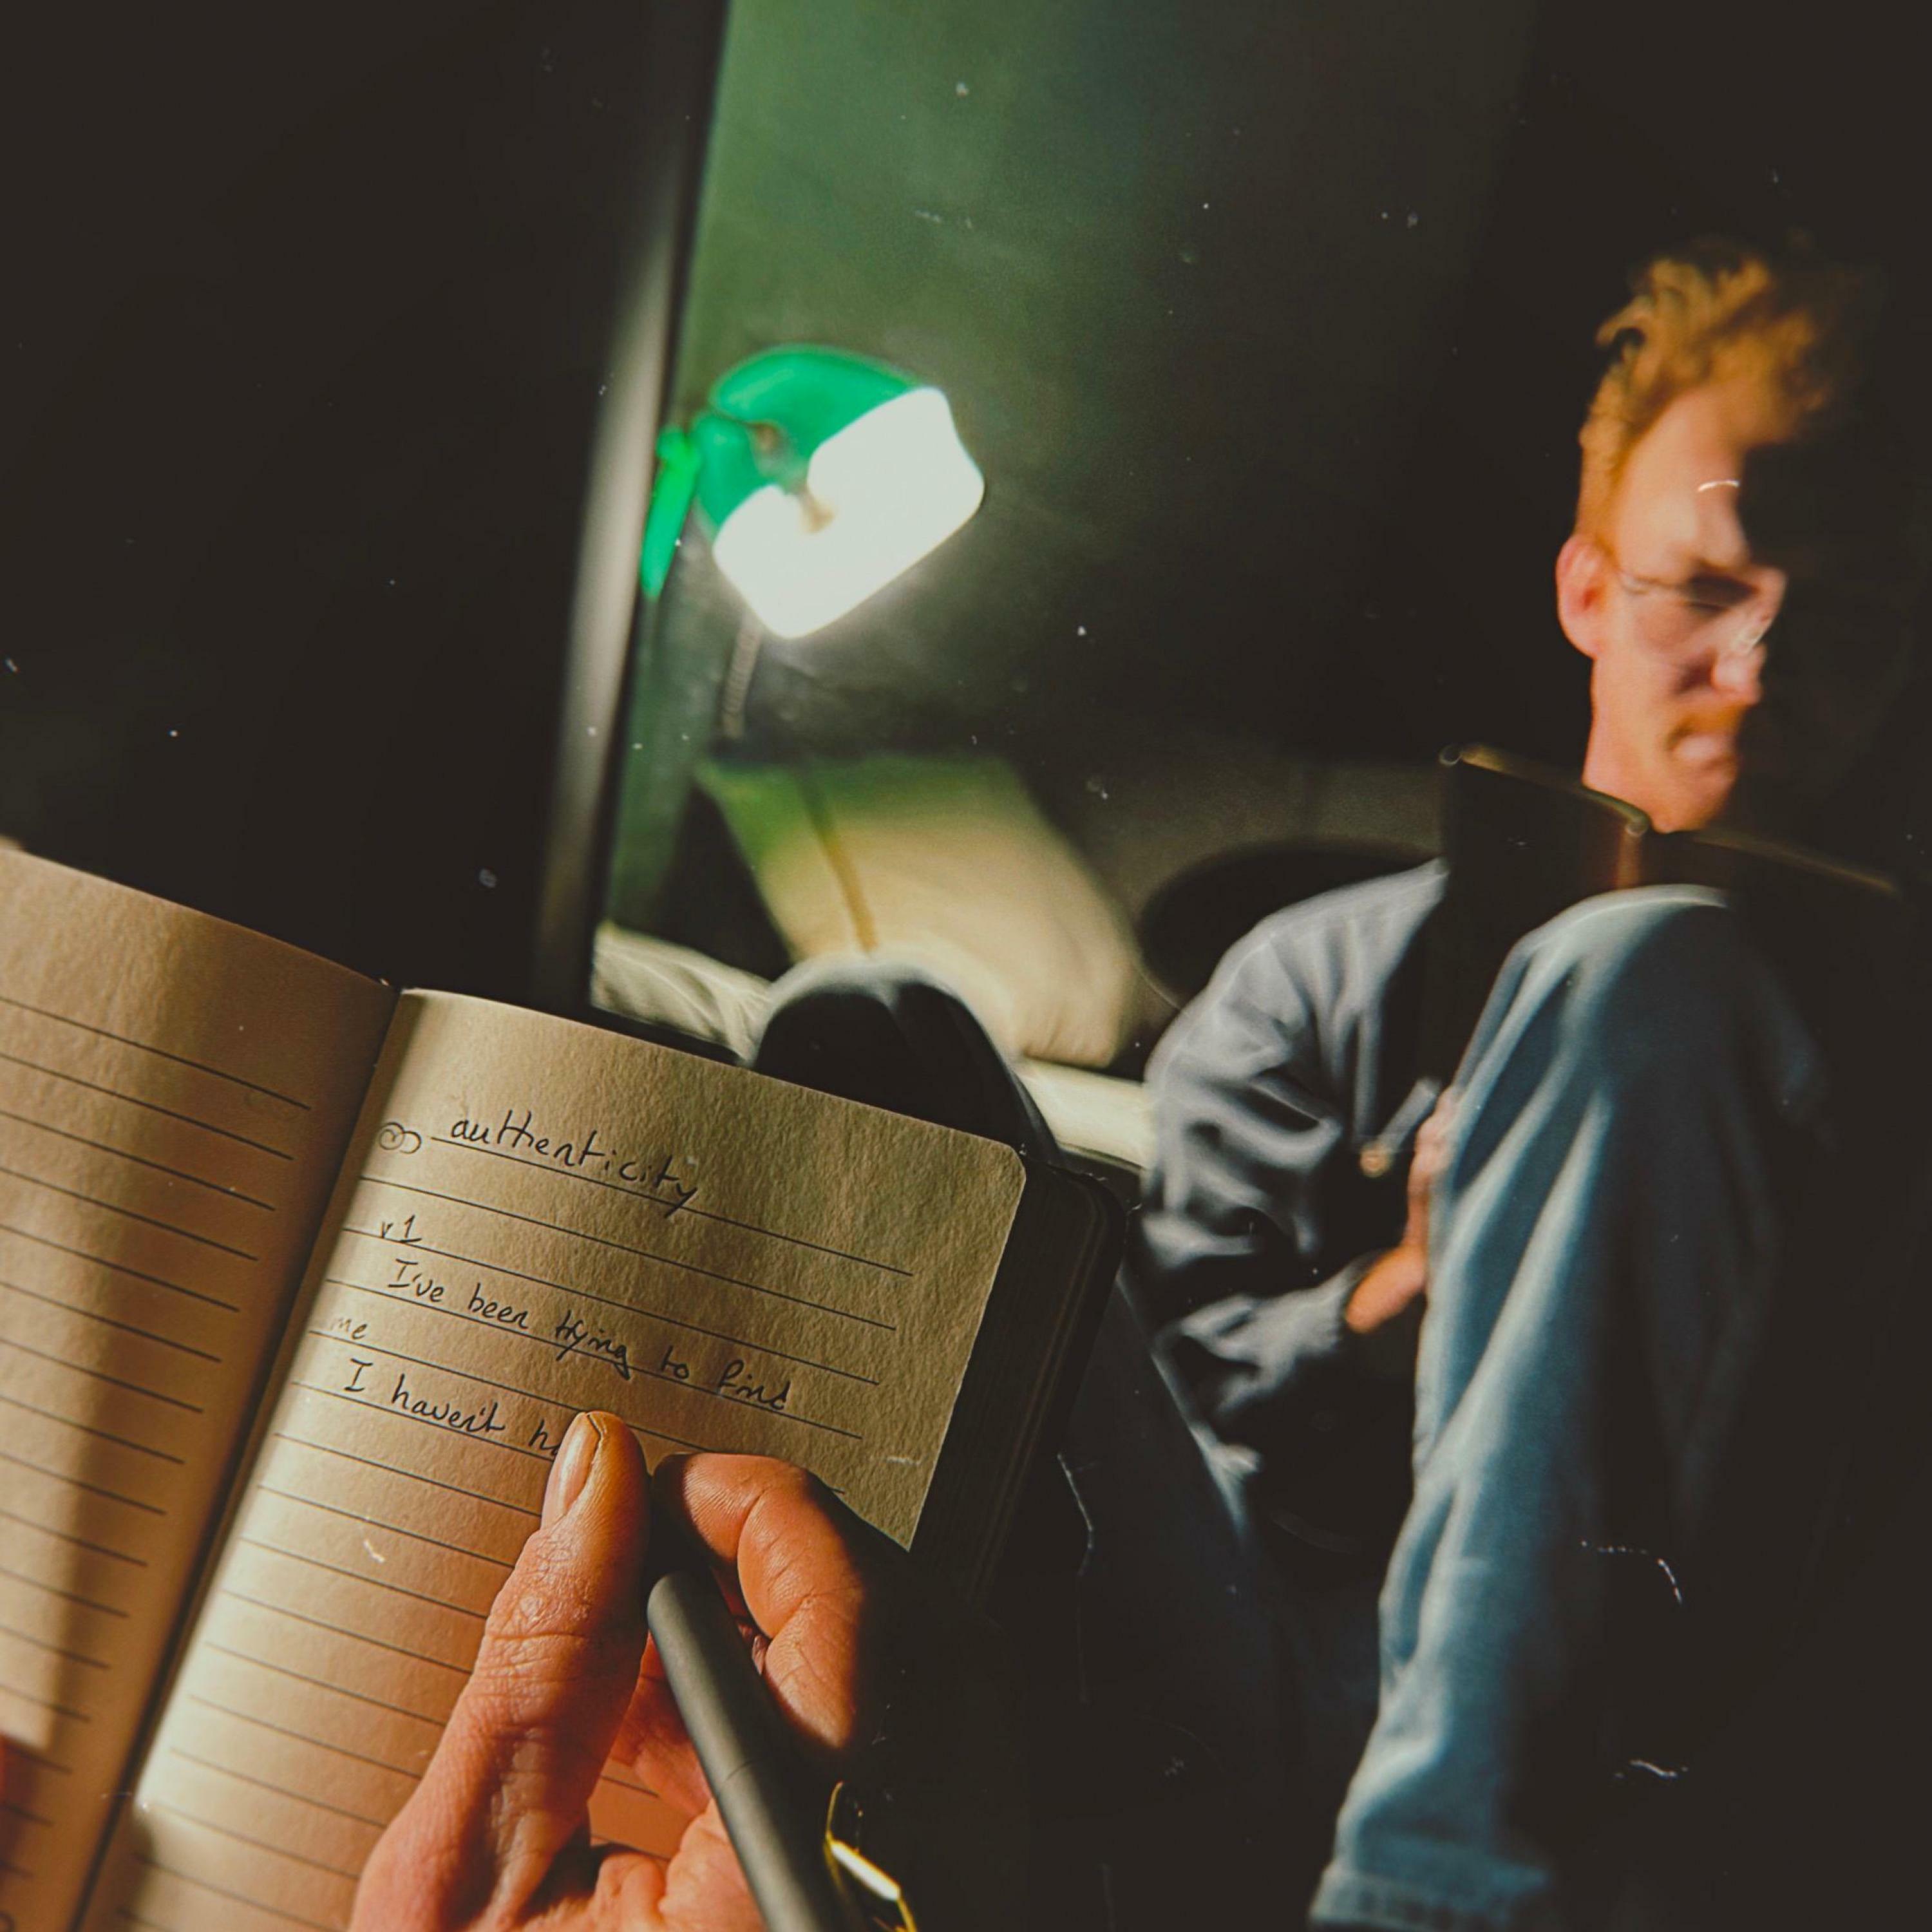 authenticity
v1
I've been trying to find
me
I haven't